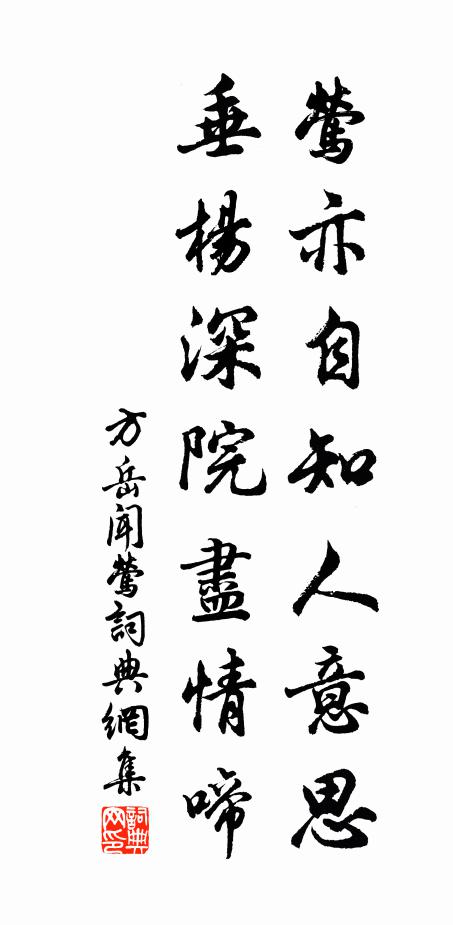 鶯亦自知人意思
垂楊深院盡情啼
方岳聞鶯詞典網集
詞典網印